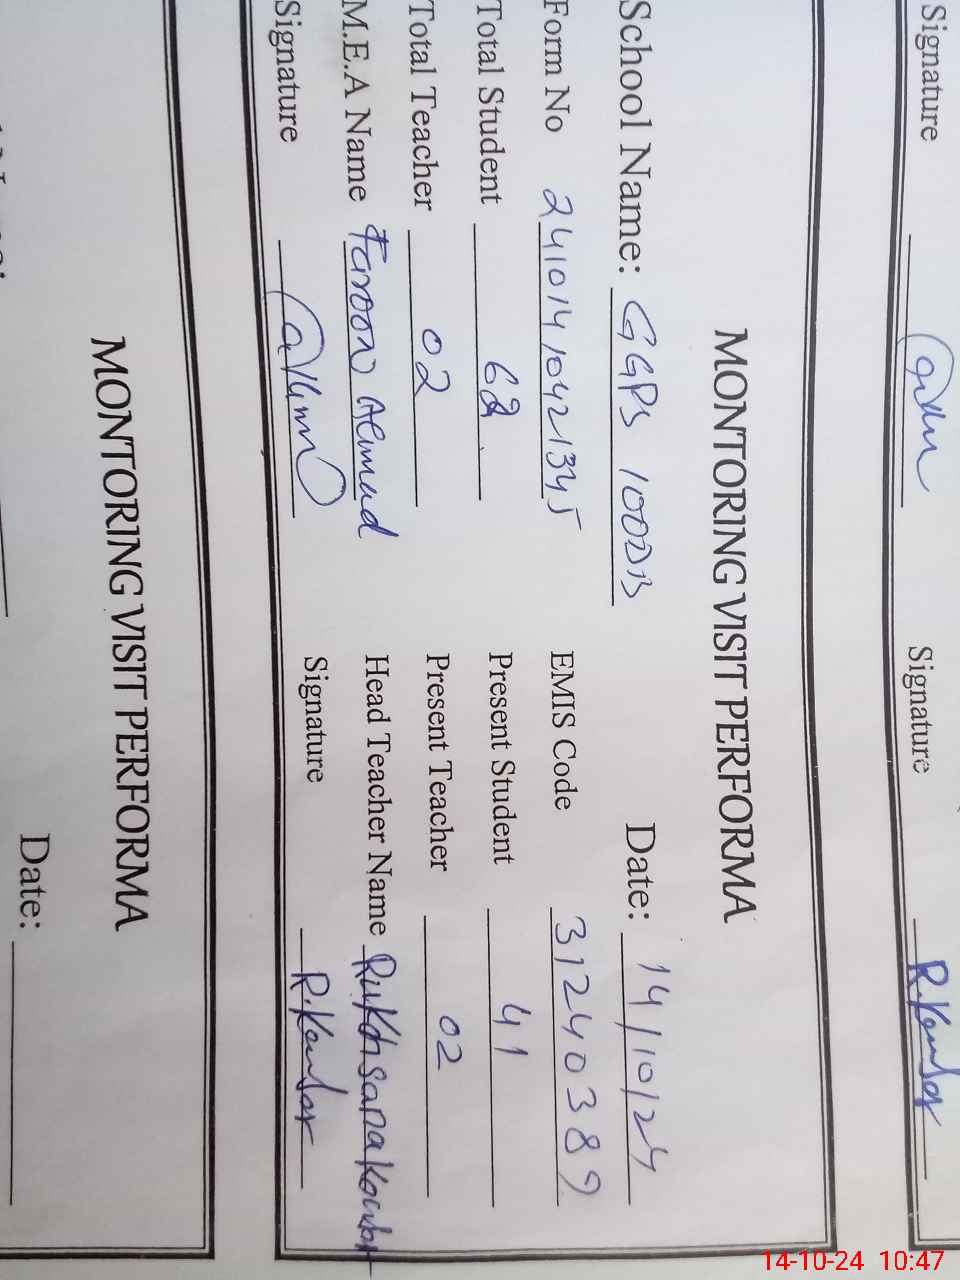 Signature Signature R.Kousar
MONTORING VISIT PERFORMA
School Name: GGPS 100DB Date: 14/10/24
Form No 241014104213345 EMIS Code 31240389
Total Student 62 Present Student 41
Total Teacher 02 Present Teacher 02
M.E.A Name Faroon Ahmad Head Teacher Name Rukhsana Kousar
Signature Signature R.Kousar
MONTORING VISIT PERFORMA
Date:
14-10-24 10:47